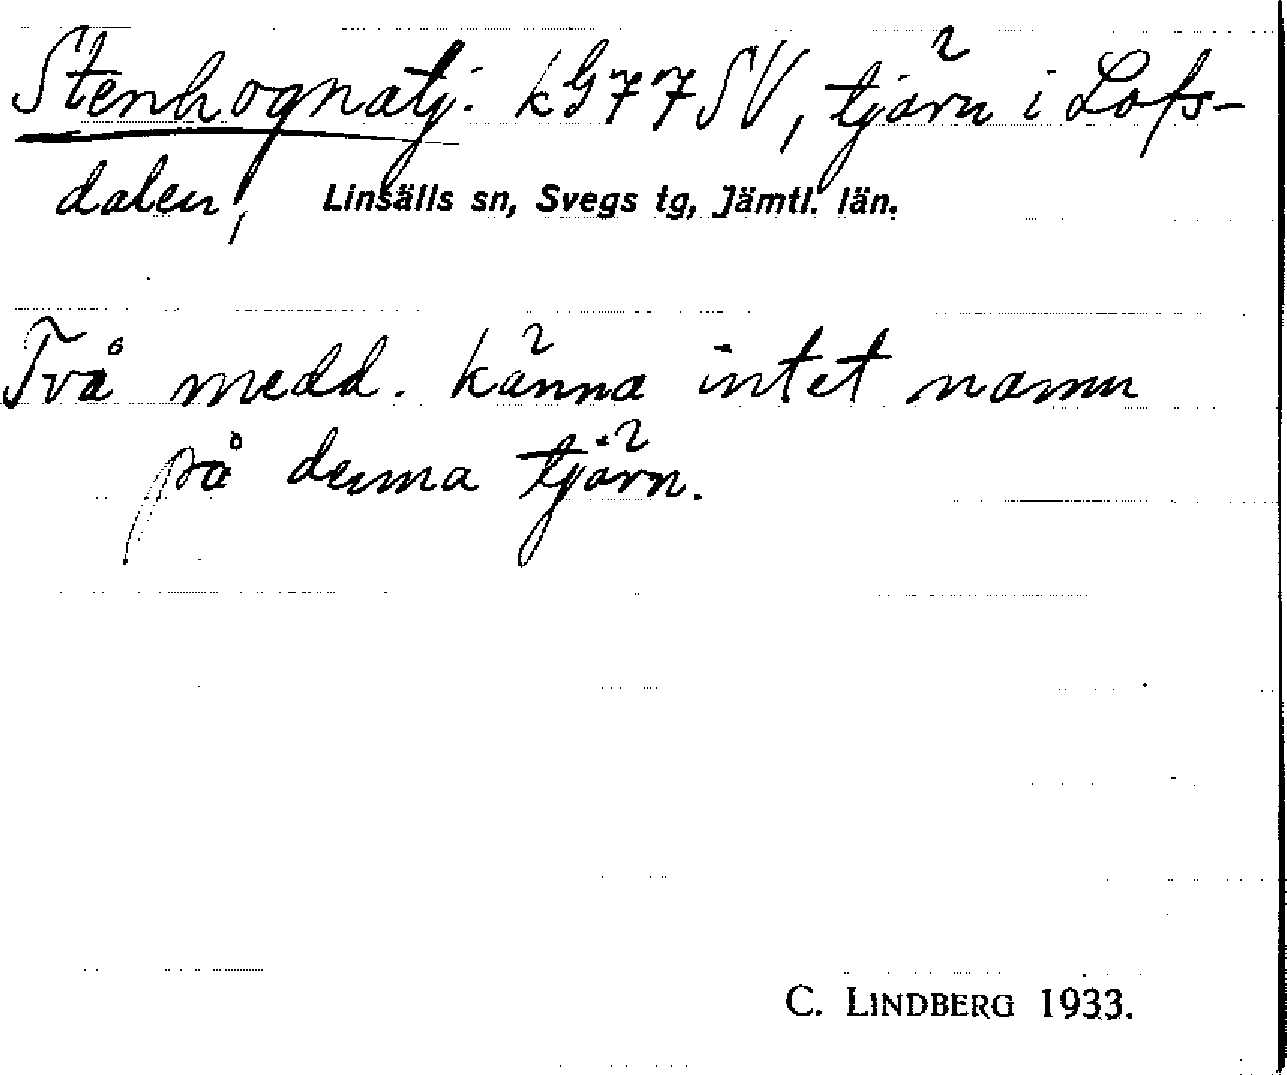 Stenhognatj. kG77SV, tjärn i Lofs-
dalen, Linsälls sn, Svegs tg, Jämtl. län.
Två medd. känna intet namn
på denna tjärn.
C. LINDBERG 1933.